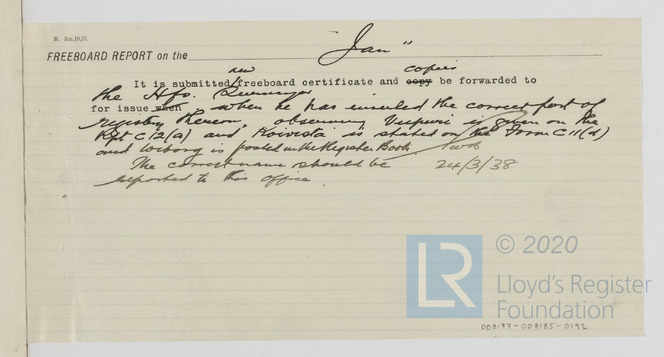 R. Jan.10,37.
FREEBOARD REPORT on the "Jan"
new copies
It is submitted freeboard certificate and copy be forwarded to
the Hfs.
for issue when when he has inserted the correct port of
registry thereon, observing Viipuri is given on the
Rpt C12(a) and Koivisto is stated on the Form C11(d)
and Wiborg is posted in the Register Book.
The correct name should be 24/3/38
reported to this office.
LR
© 2020
Lloyd's Register
Foundation
008197-008185-0192